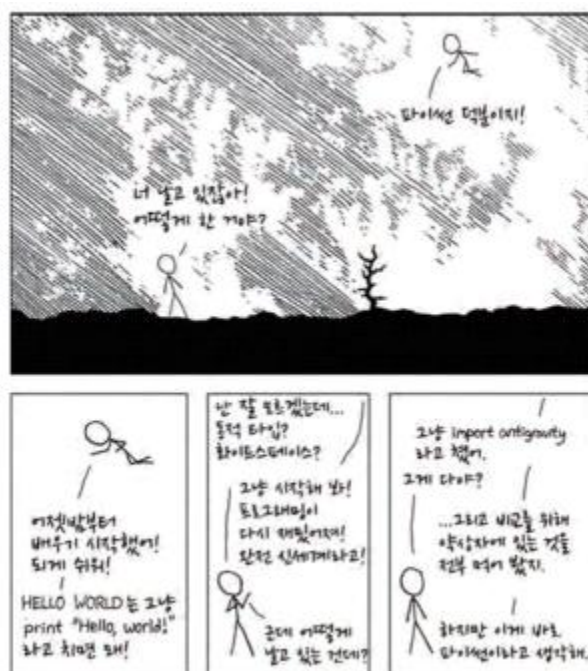 너 날고 있잖아!
어떻게 한 거야?
파이썬 덕분이지!
어젯밤부터
배우기 시작했어!
되게 쉬워!
HELLO WORLD는 그냥
print "Hello, world!"
라고 치면 돼!
난 잘 모르겠는데...
동적 타입?
화이트스페이스?
그냥 시작해 봐!
프로그래밍이
다시 재밌어져!
완전 신세계라고!
근데 어떻게
날고 있는 건데?
그냥 import antigravity
라고 쳤어.
그게 다야?
...그리고 비교를 위해
약상자에 있는 것을
전부 먹어 봤지.
하지만 이게 바로
파이썬이라고 생각해.